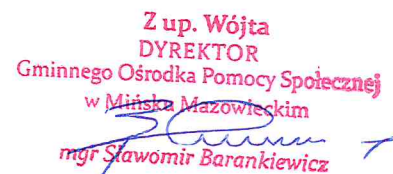 Z up. Wójta
DYREKTOR
Gminnego Ośrodka Pomocy Społecznej
w Mińsku Mazowieckim
mgr Sławomir Barankiewicz